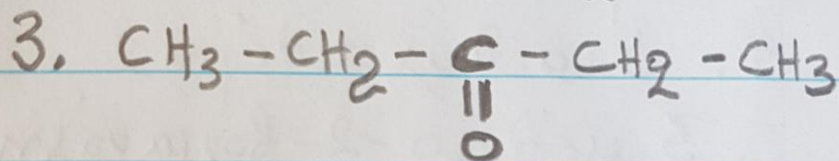 3. CH3 - CH2 - C - CH2 - CH3
||
O